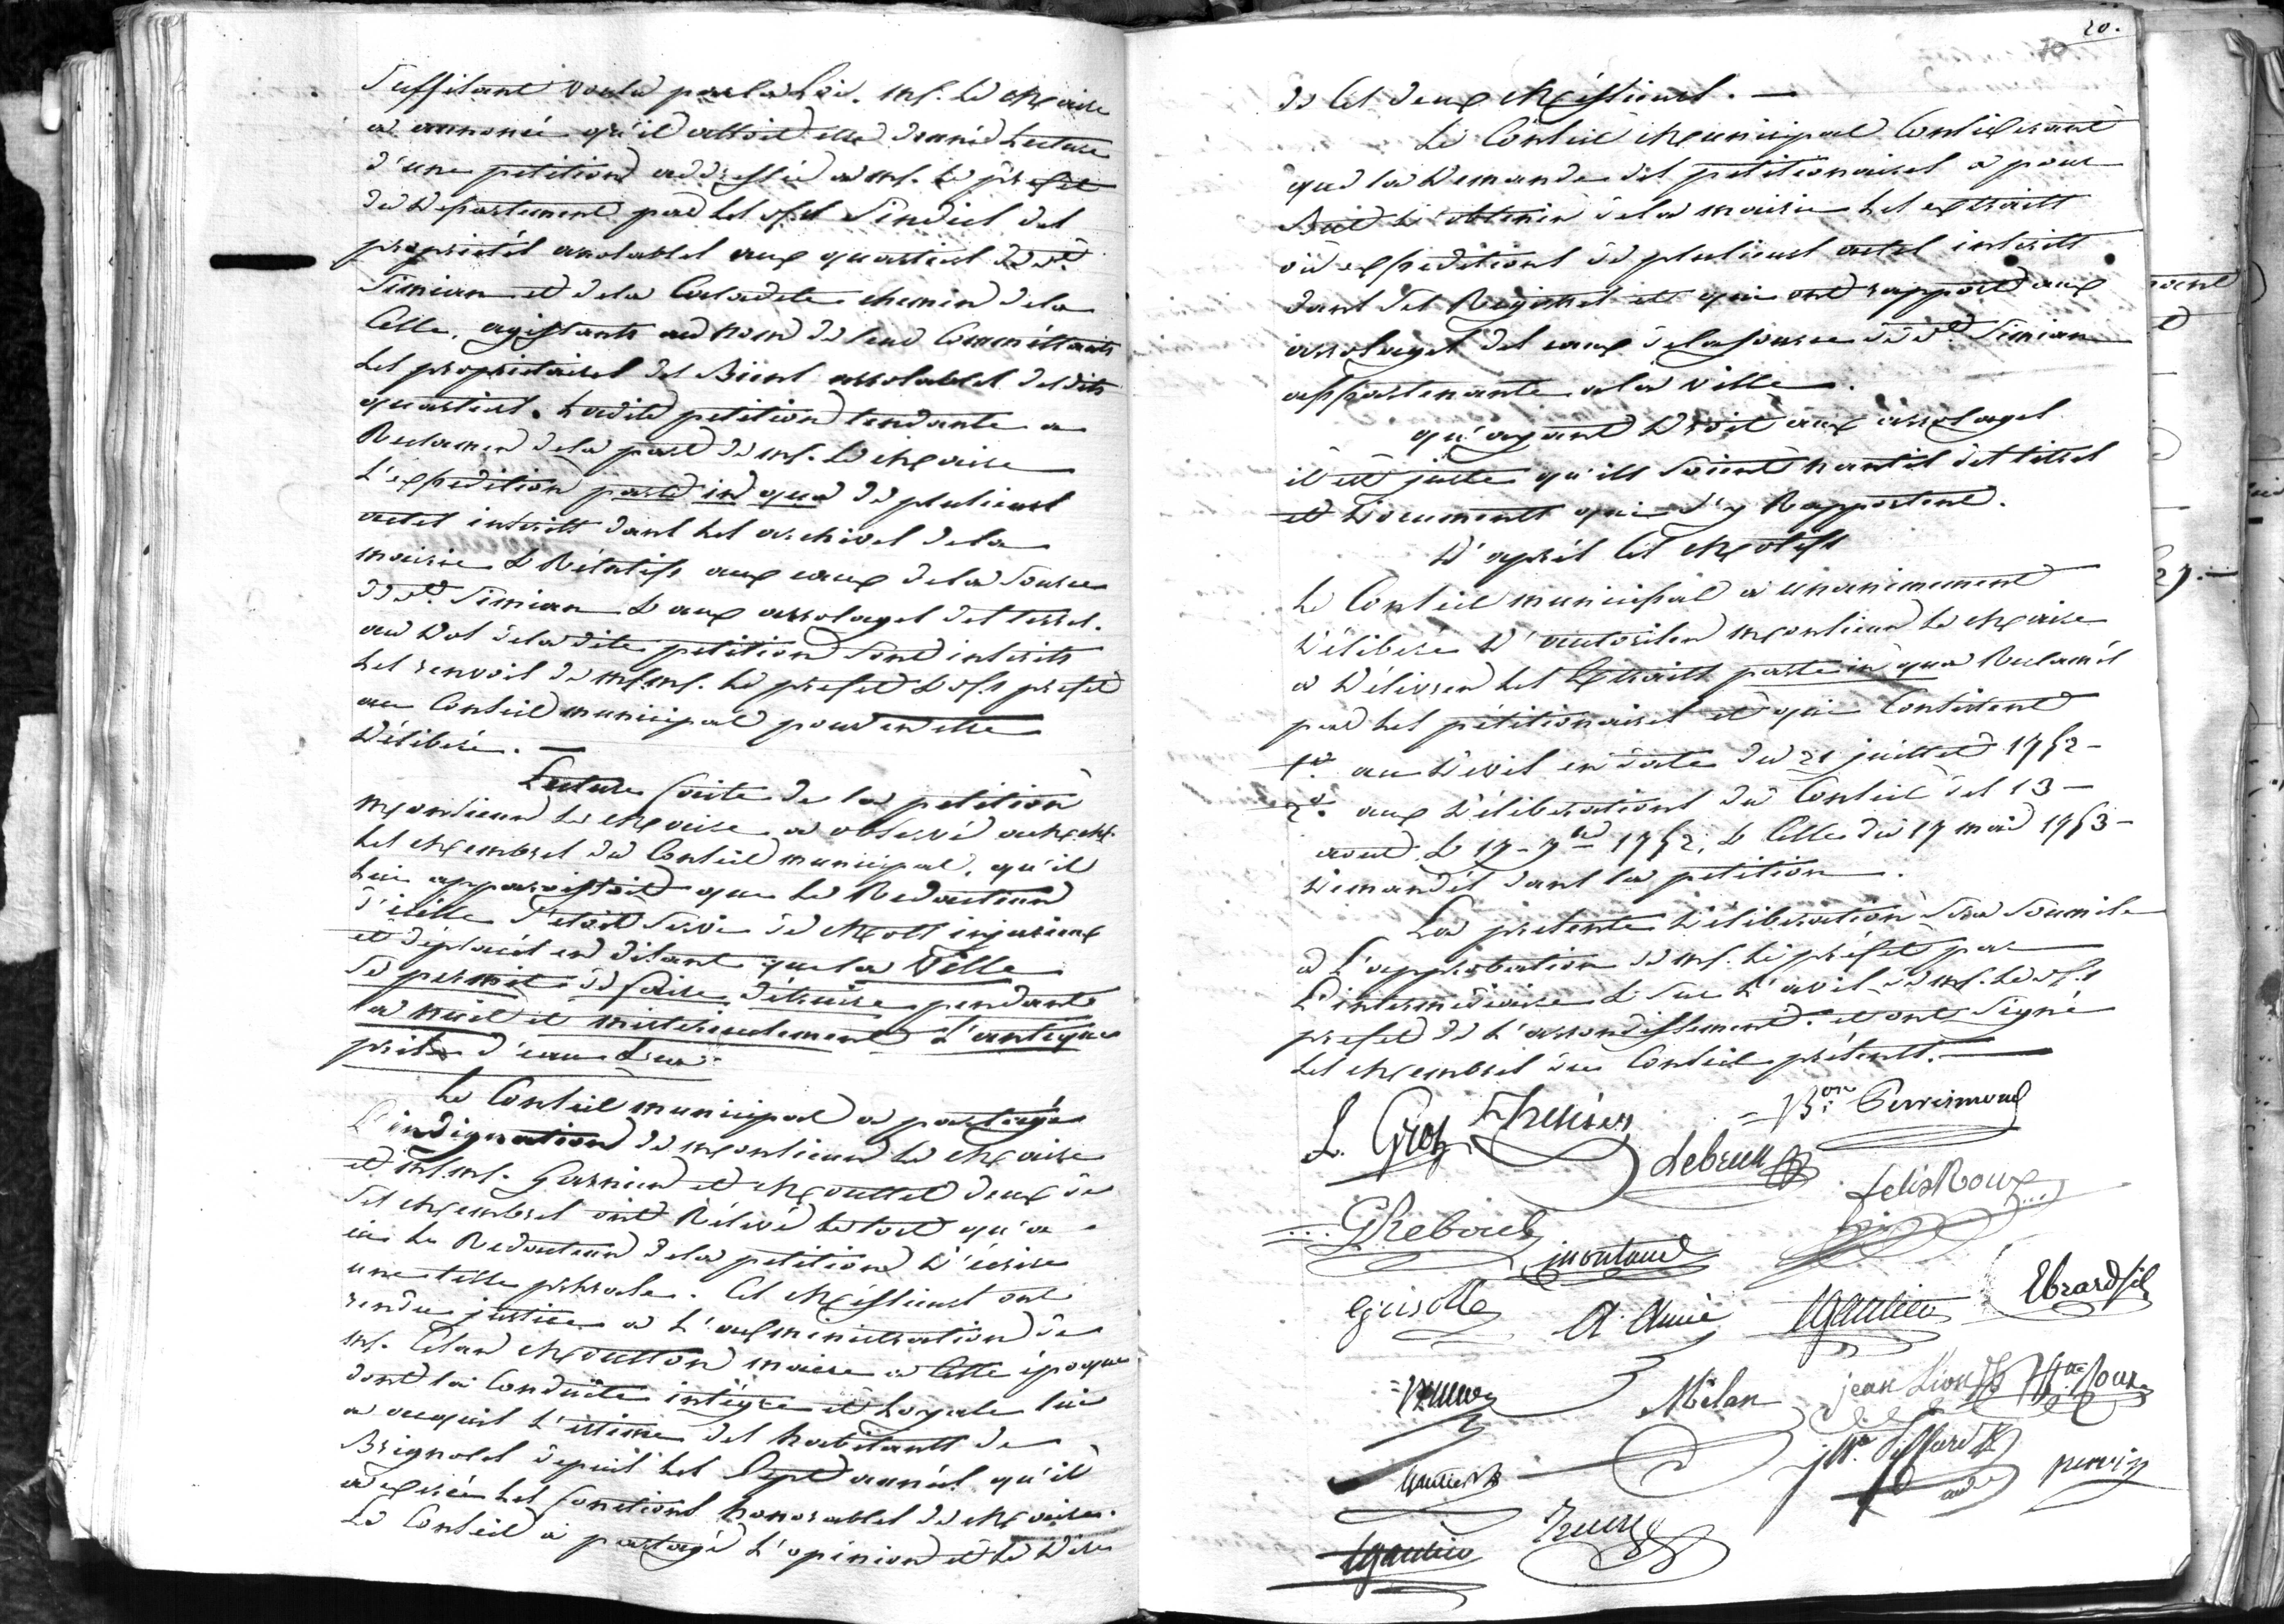 suffisant voulu par la Loi. Mr. Le Maire
a annoncé qu'il alloit etre donné Lecture
d'une petition addressée a Mr. Le prefet
du Departement par les srs. Sindics des
proprietés arrosables aux quartiers de St.
Simian et de la Caladete chemin de la
Celle, agissants au nom de leurs Comméttants
Les proprietaires des Biens arrosables desdits
quartiers. Ladite petition tendante a
Reclamer de la part de Mr. Le Maire
L'expedition parte in qua de plusieurs
actes inscrits dans les archives de la
mairie & Rélatifs aux eaux de la Source
de St. Simian & aux arrosages des terres.
au dos de la dite petition sont inscrits
Les renvois de MM. Le prefet & Ss. prefet
au Conseil municipal pour en etre
Déliberé.
Lecture faite de la petition
Monsieur Le Maire a observé a MM.
Les Membres du Conseil municipal, qu'il
lui apparoissoit que Le Redacteur
d'icelle s'etoit servi de Mots injurieux
et déplacés en disant que la Ville
se permit de faire détruire pendant
la nuit et misterieusement L'antique
prise d'eau &ca.
Le Conseil municipal a partagé
L'indignation de Monsieur Le Maire
et MM. Garnier et Mouttet deux de
ses Membres ont Rélevé Le tort qu'a
eu Le Redacteur de la petition D'écrire
une telle phrase. Ces Messieurs ont
rendu justice a L'administration de
Mr. Mouttou maire a cette époque
dont la Conduite intégre et Loyale lui
a acquis L'estime des habitants de
Brignoles depuis Les Sept années qu'il
a exercé Les fonctions honorables de Maire.
Le Conseil a partagé L'opinion et Le dire
20.
de Ces deux Messieurs.
Le Conseil Municipal Considerant
que la Demande des petitionaires a pour
But D'obtenir de la mairie Les extraits
ou expeditions de plusieurs actes inscrits
dans ses Registres et qui ont rapport aux
arrosages des eaux de la source de St. Simian
appartenante a la ville.
qu'ayant Droit aux arrosages
il est juste qu'ils soient nantis des titres
et Documents qui s'y Rapportent.
D'aprés Ces Motifs
Le Conseil municipal a unanimement
Déliberé D'autoriser Monsieur Le Maire
a Délivrer Les Extraits parte in qua Reclamés
par Les pétitionaires et qui Consistent
1º. au Devis en date du 21 juillet 1752
2º. aux Déliberations du Conseil des 13
aout & 17 7bre 1752, & Celle du 17 mai 1753
Demandés dans la petition.
La présente Déliberation sera soumise
a L'approbation de Mr. Le préfet par
L'intermédiaire & sur L'avis de Mr. Le Ss.
prefet de L'arrondissement. et ont signé
Les Membres du Conseil présents.
L. Gros
Bon Perrimond
Lebrun
Felix Roux
G Reboul
Montaud
Grisolle
A. Amic
Ebrard fils
Mélan
jean Lion
perrin